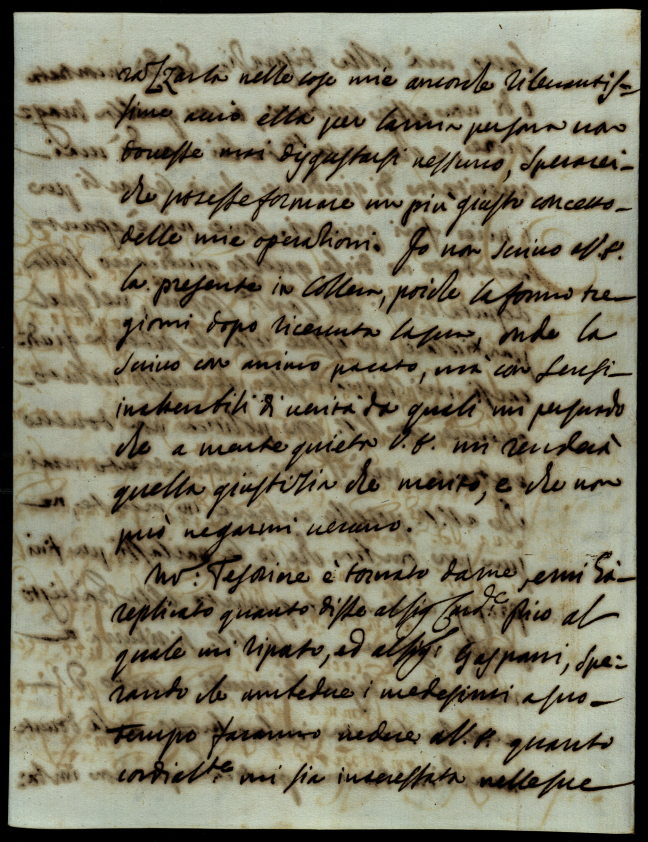 razzarla nelle cose mie ancorche rileuantis-
sime acciò ella per la mia persona non
douesse mai disgustarsi nessuno, sperarei-
che potesse formare un più giusto concetto-
delle mie operationi. Io non scriuo a V.S.
la presente in collera, poiche la formo tre-
giorni dopo riceuuta la sua, onde la
scriuo con animo pacato, mà con sensi-
inalterabili di uerità da quali mi persuado
che a mente quieta V.S. mi renderà
quella giustitia che merito, e che non
può negarmi ueruno.
Mr: Tesoriere è tornato da me, e mi hà-
replicato quanto disse al sig Card.le Pico al
quale mi riporto, ed al sig: Gaspari, spe-
rando che ambedue i medesimi a suo-
tempo faranno uedere a V.S. quanto
cordialte. mi sia interessata nelle sue